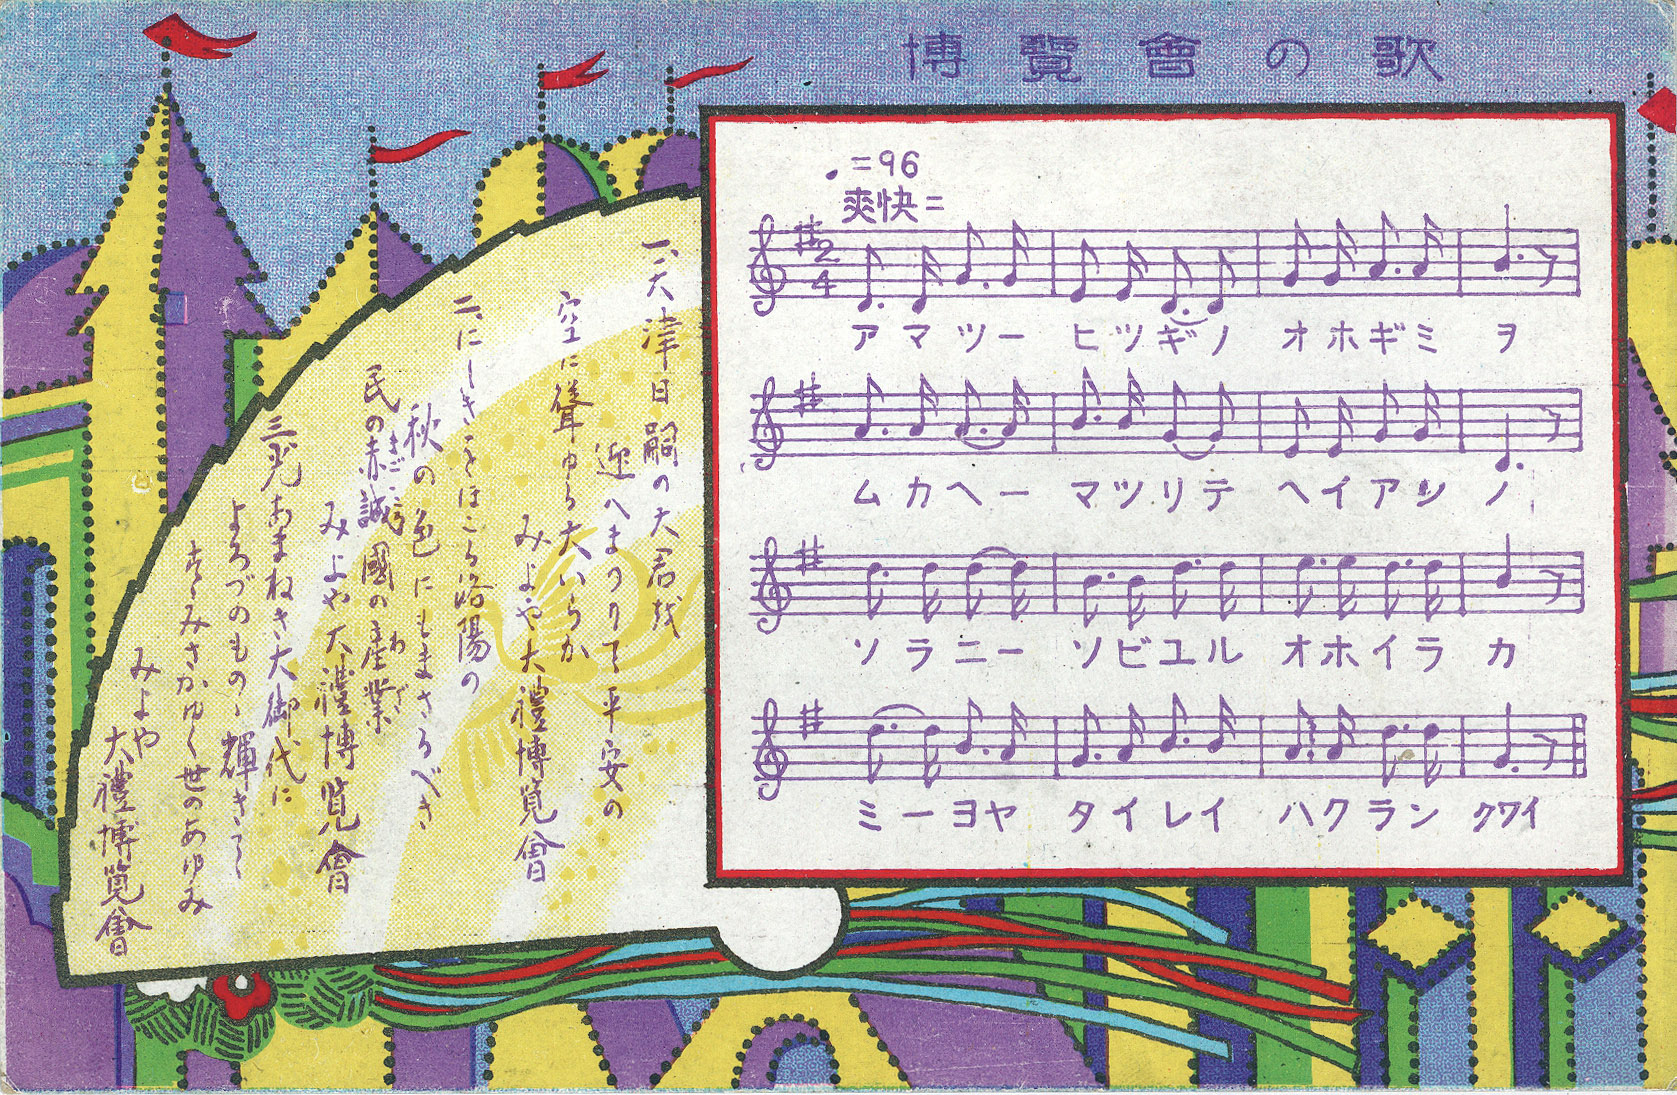 博覽會の歌
♩.=96
爽快ニ
2
4
アマツー ヒツギノ オホギミ ヲ
ムカヘー マツリテ ヘイアン ノ
ソラニー ソビユル オホイラ カ
ミーヨヤ タイレイ ハクラン クワイ
一、天津日嗣の大君を
迎へまつりて平安の
空に聳ゆる大いらか
みよや大禮博覧會
二、にしきをほこる洛陽の
秋の色にもまさるべき
民の赤誠國の産業
まごころ
わざ
みよや大禮博覧會
三、光あまねき大御代に
よろづのもの輝きて
すゝみさかゆく世のあゆみ
みよや
大禮博覧會